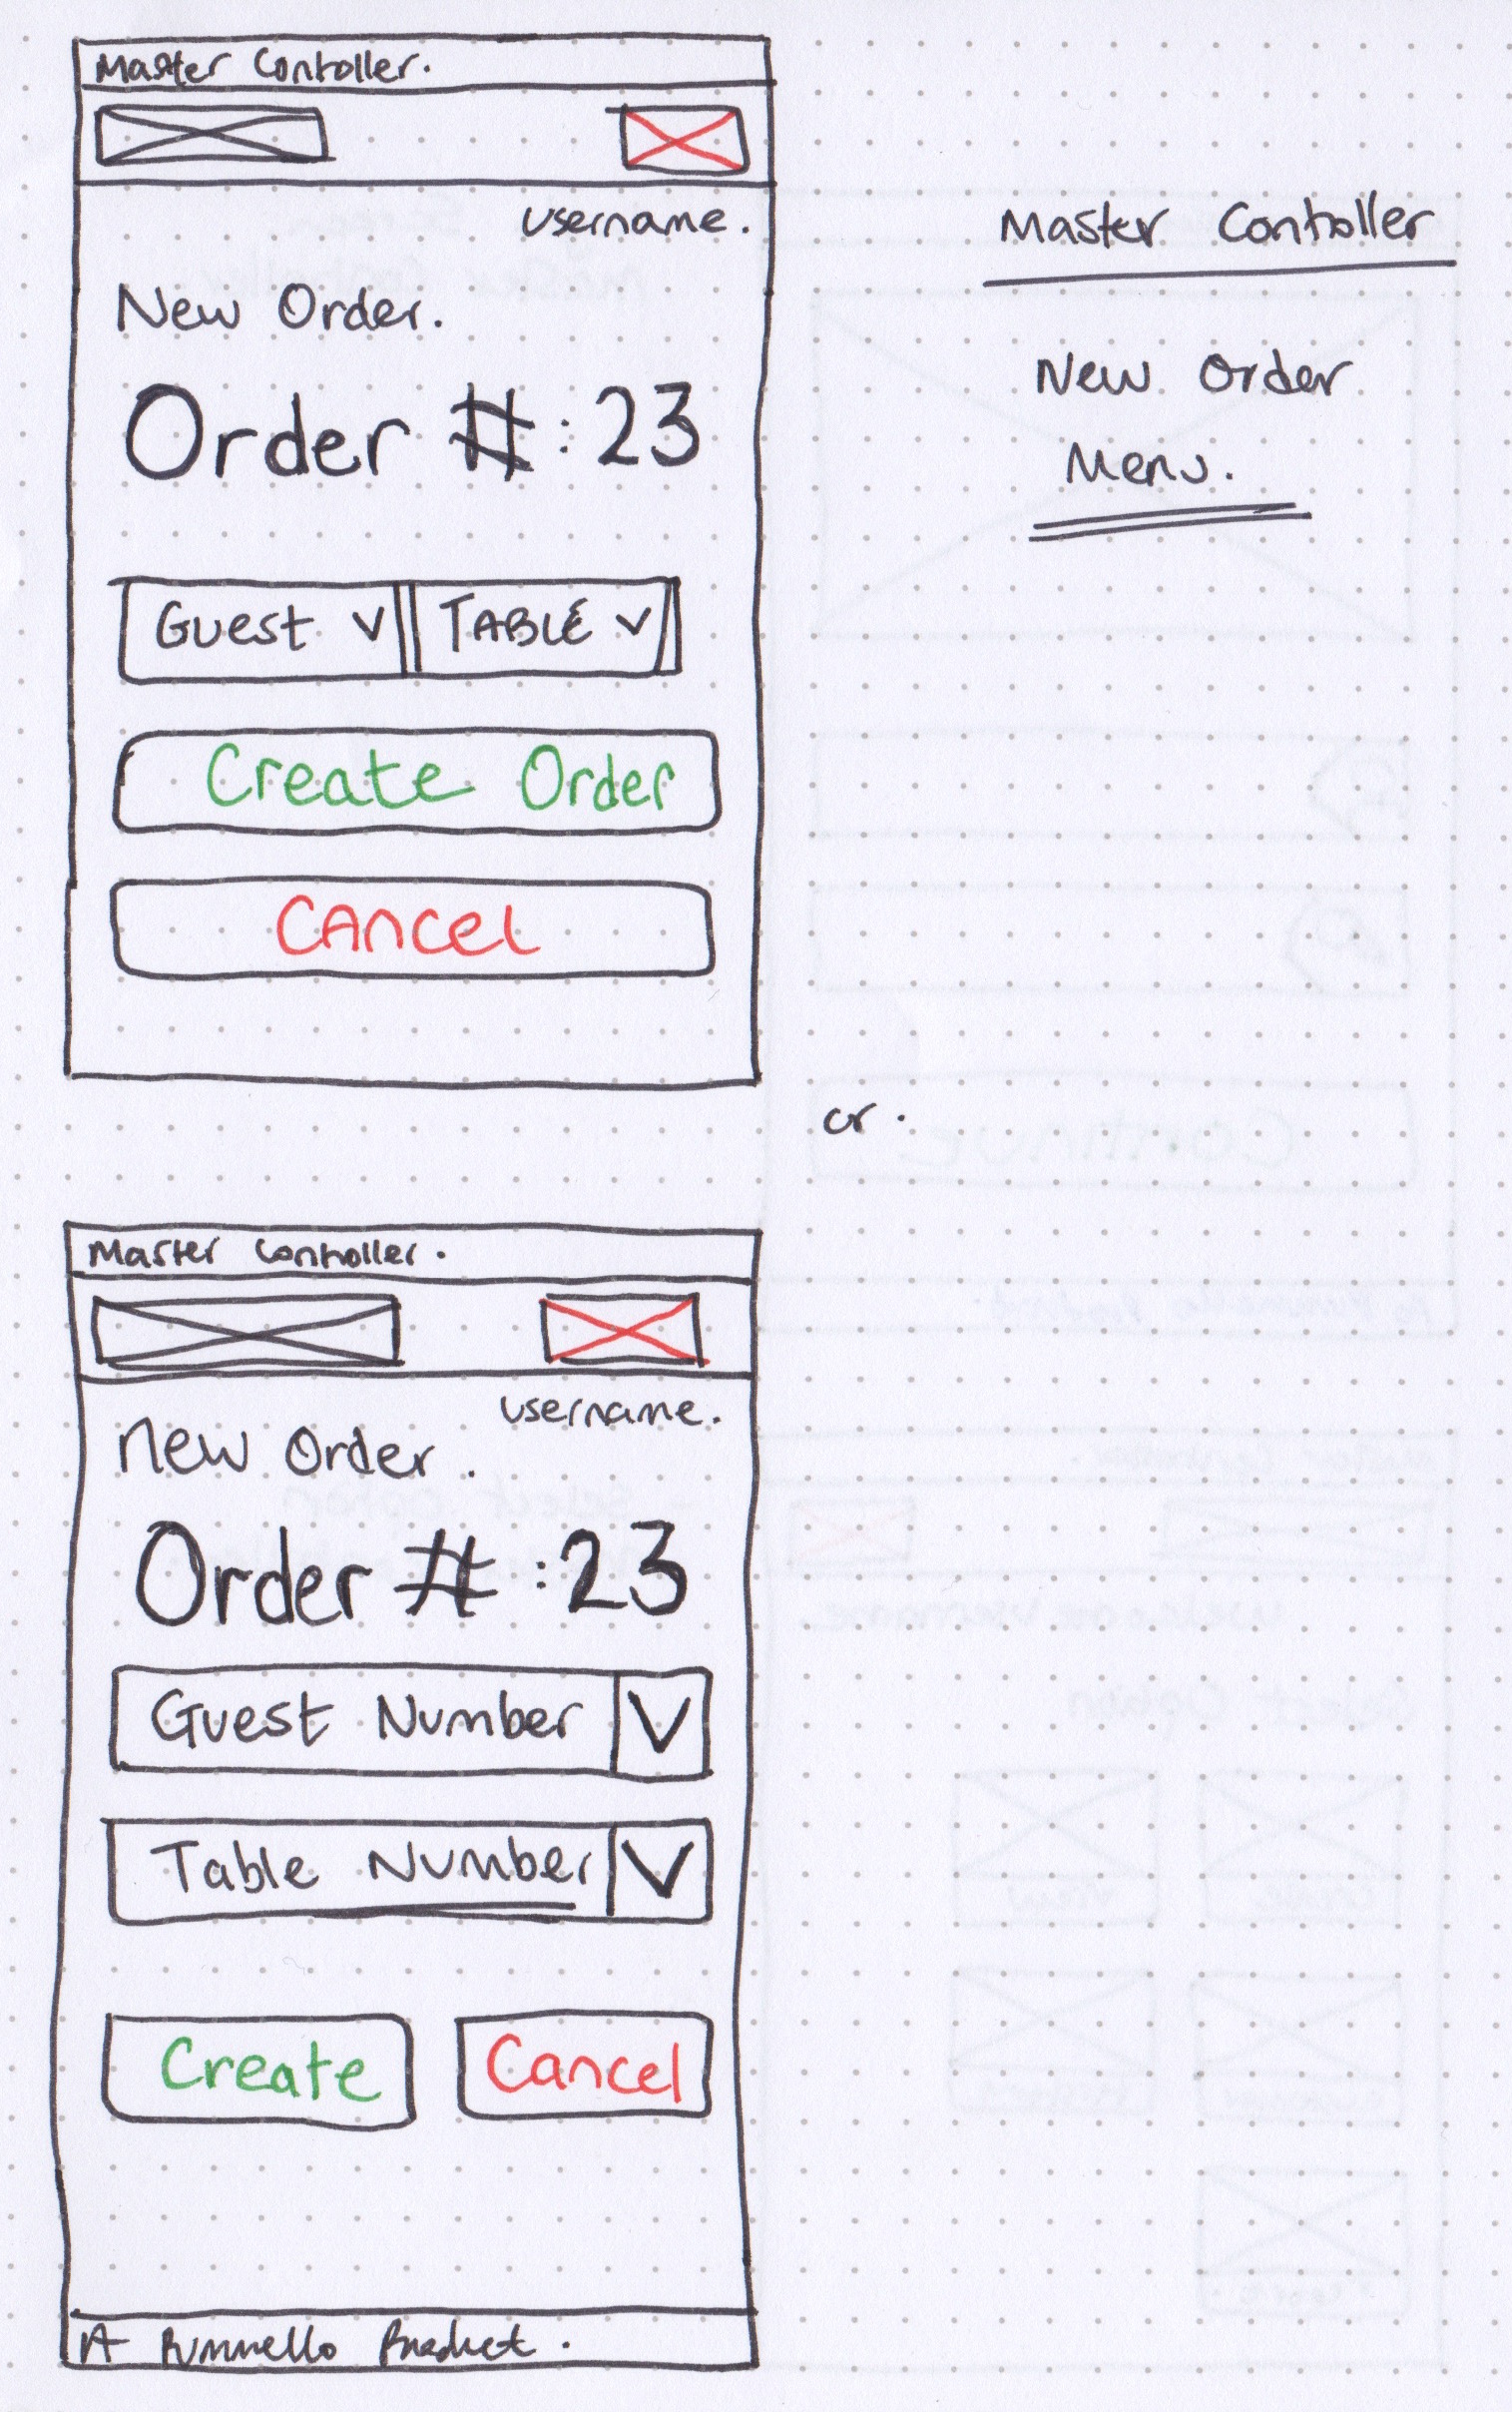 Master Contoller.
username.
New Order.
Order #:23
Guest V TABLE V
Create Order
CANCEL
Master Contoller
New Order
Menu.
or.
Master Contoller.
username.
New Order.
Order #:23
Guest Number V
Table Number V
Create Cancel
A Product.